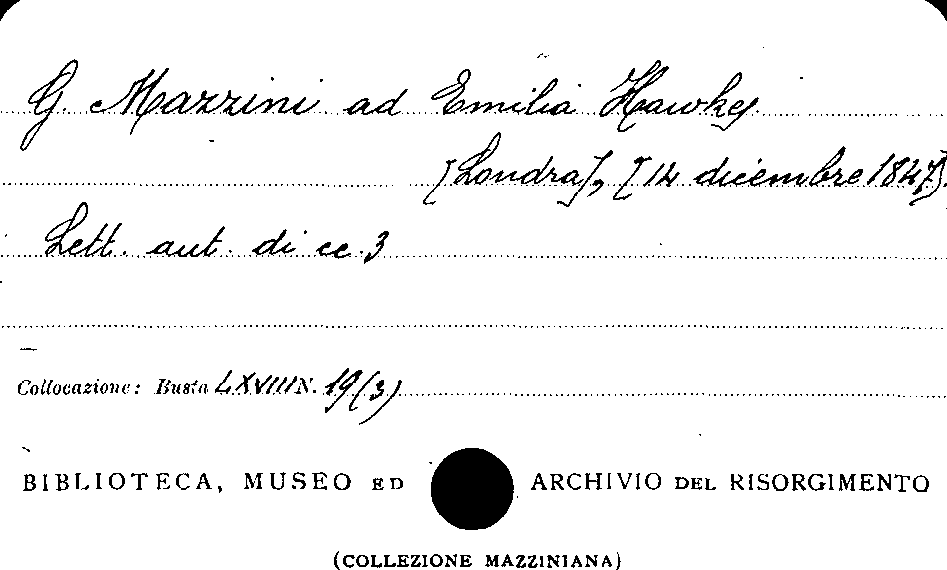 G. Mazzini ad Emilia Hawkes
[Londra], [14 dicembre 1847].
Lett. aut. di cc. 3
Collocazione: Busta LXVIII N. 19 (3)
BIBLIOTECA, MUSEO ED ARCHIVIO DEL RISORGIMENTO
(COLLEZIONE MAZZINIANA)